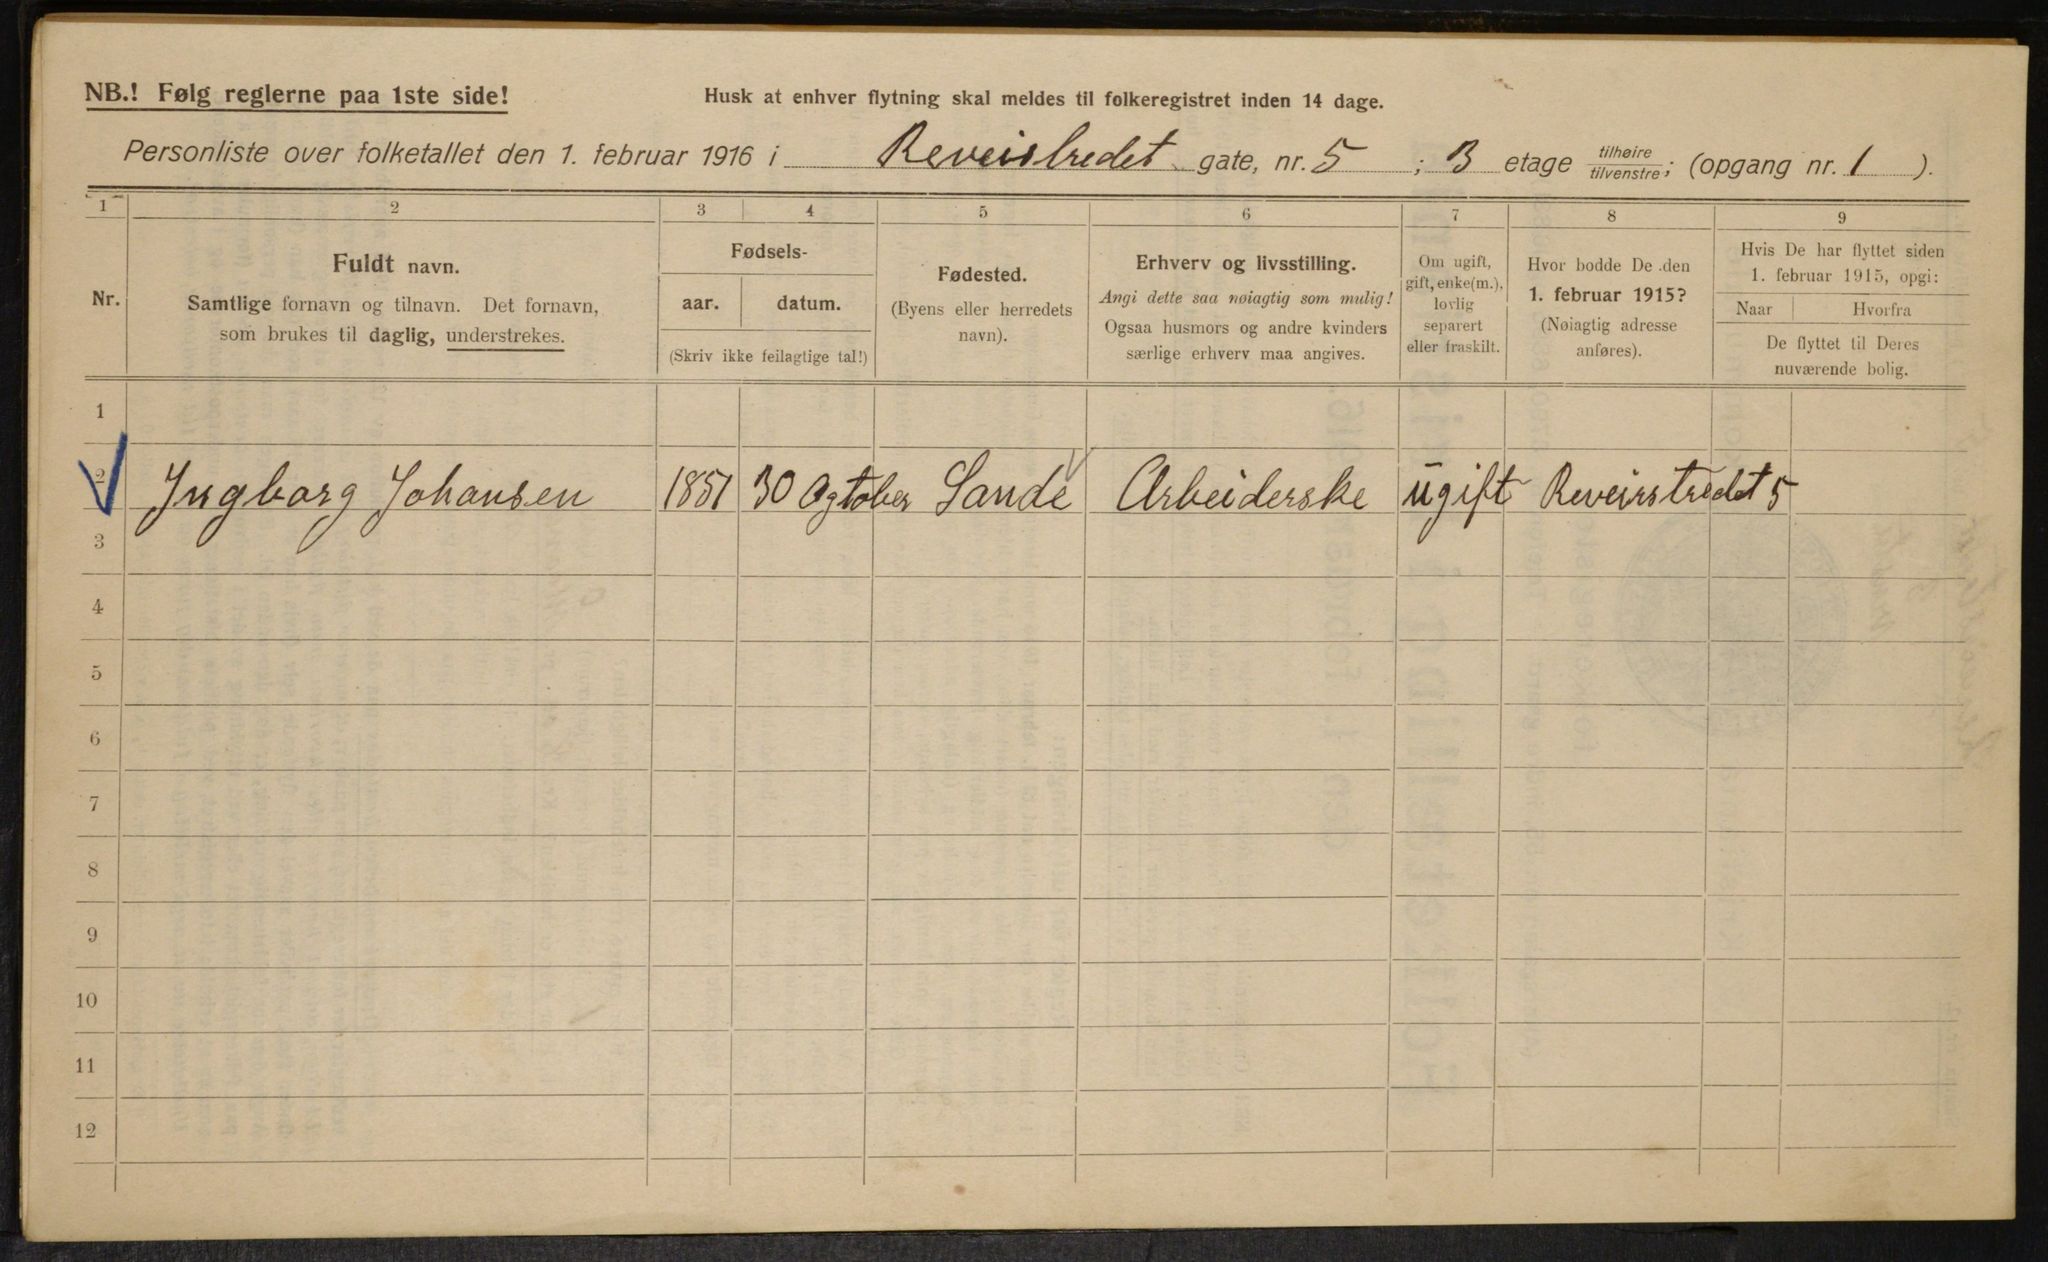 NB.! Følg reglerne paa 1ste side!
Husk at enhver flytning skal meldes til folkeregistret inden 14 dage.
Personliste over folketallet den 1. februar 1916 i Reveirstredet gate, nr. 5 ; 3 etage tilhøire/tilvenstre; (opgang nr. 1 ).
1 2 3 4 5 6 7 8 9
Nr.
Fuldt navn.
Samtlige fornavn og tilnavn. Det fornavn,
som brukes til daglig, understrekes.
Fødsels-
aar. datum.
(Skriv ikke feilagtige tal!)
Fødested.
(Byens eller herredets
navn).
Erhverv og livsstilling.
Angi dette saa nøiagtig som mulig!
Ogsaa husmors og andre kvinders
særlige erhverv maa angives.
Om ugift,
gift, enke(m.),
lovlig
separert
eller fraskilt.
Hvor bodde De den
1. februar 1915?
(Nøiagtig adresse
anføres).
Hvis De har flyttet siden
1. februar 1915, opgi:
Naar Hvorfra
De flyttet til Deres
nuværende bolig.
1
2 Ingborg Johansen 1851 30 Ogtober Sande Arbeiderske ugift Reveirstredet 5
3
4
5
6
7
8
9
10
11
12